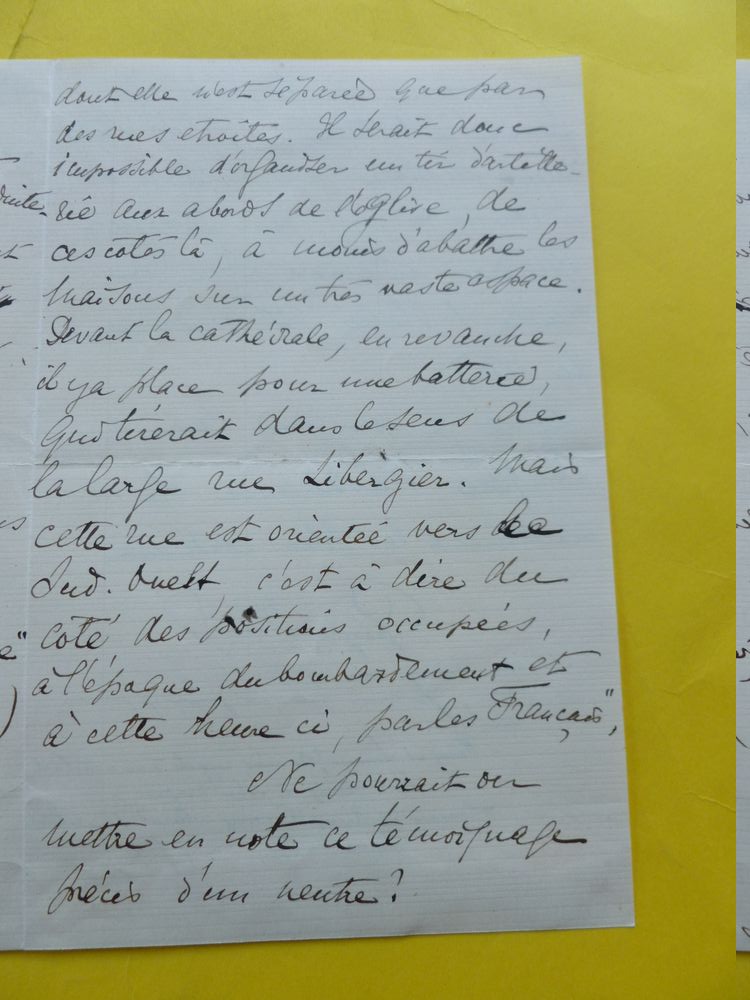 dont elle n'est séparée que par
des rues etroites. Il serait donc
impossible d'organiser un tir d'artille-
rie aux abords de l'église, de
ces cotés là, à moins d'abattre les
maisons sur un très vaste espace.
Devant la cathédrale, en revanche,
il y a place pour une batterie,
qui tirerait dans le sens de
la large rue Libergier. Mais
cette rue est orientée vers le
Sud. Ouest, c'est à dire du
coté des positions occupées,
à l'époque du bombardement et
à cette heure ci, par les Français",
Ne pourrait on
mettre en note ce témoignage
précis d'un neutre?